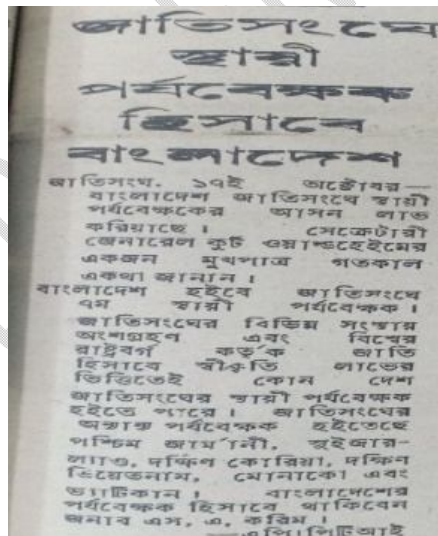 জাতিসংঘে
স্থায়ী
পর্যবেক্ষক
হিসাবে
বাংলাদেশ
জাতিসংঘ, ১৭ই অক্টোবর—
বাংলাদেশ জাতিসংঘে স্থায়ী
পর্যবেক্ষকের আসন লাভ
করিয়াছে। সেক্রেটারী
জেনারেল কুর্ট ওয়াল্ডহেইমের
একজন মুখপাত্র গতকাল
একথা জানান।
বাংলাদেশ হইবে জাতিসংঘে
৭ম স্থায়ী পর্যবেক্ষক।
জাতিসংঘের বিভিন্ন সংস্থায়
অংশগ্রহণ এবং বিশ্বের
রাষ্ট্রবর্গ কর্তৃক জাতি
হিসাবে স্বীকৃতি লাভের
ভিত্তিতেই কোন দেশ
জাতিসংঘের স্থায়ী পর্যবেক্ষক
হইতে পারে। জাতিসংঘের
অন্যান্য পর্যবেক্ষক হইতেছে
পশ্চিম জার্মানী, সুইজার-
ল্যাণ্ড, দক্ষিণ কোরিয়া, দক্ষিণ
ভিয়েতনাম, মোনাকো এবং
ভ্যাটিকান। বাংলাদেশের
পর্যবেক্ষক হিসাবে থাকিবেন
জনাব এস, এ, করিম।
—এপি।পিটিআই